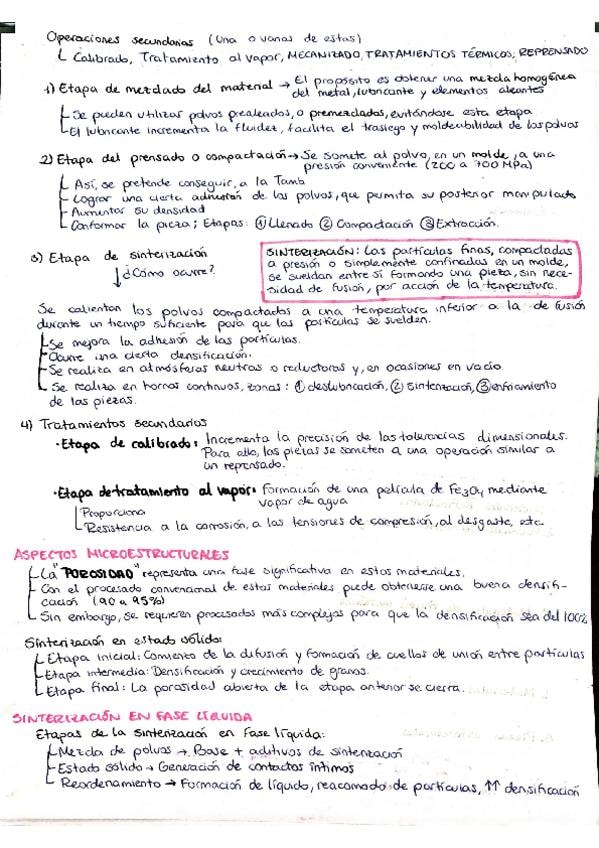 Operaciones secundarias (Una o varias de estas)
Calibrado, Tratamiento al vapor, MECANIZADO, TRATAMIENTOS TÉRMICOS, REPRENSADO
1) Etapa de mezclado del material → El propósito es obtener una mezcla homogénea
del metal, lubricante y elementos aleantes
Se pueden utilizar polvos prealeados, o premezclados, evitándose esta etapa
El lubricante incrementa la fluidez, facilita el trasiego y moldeabilidad de los polvos
2) Etapa del prensado o compactación → Se somete al polvo, en un molde, a una
presión conveniente (200 a 700 MPa)
Así, se pretende conseguir, a la Tamb
Lograr una cierta adhesión de los polvos, que permita su posterior manipulado
Aumentar su densidad
Conformar la pieza; Etapas: ① Llenado ② Compactación ③ Extracción.
3) Etapa de sinterización
¿Cómo ocurre?
SINTERIZACIÓN: Las partículas finas, compactadas
a presión o simplemente confinadas en un molde,
se sueldan entre sí formando una pieza, sin nece-
sidad de fusión, por acción de la temperatura.
Se calientan los polvos compactados a una temperatura inferior a la de fusión
durante un tiempo suficiente para que las partículas se suelden.
Se mejora la adhesión de las partículas.
Ocurre una cierta densificación.
Se realiza en atmósferas neutras o reductoras y, en ocasiones en vacío.
Se realiza en hornos continuos, zonas: ① deslubricación, ② sinterización, ③ enfriamiento
de las piezas.
4) Tratamientos secundarios
· Etapa de calibrado: Incrementa la precisión de las tolerancias dimensionales.
Para ello, las piezas se someten a una operación similar a
un reprensado.
· Etapa de tratamiento al vapor: Formación de una película de Fe3O4 mediante
vapor de agua
Proporciona
Resistencia a la corrosión, a las tensiones de compresión, al desgaste, etc.
ASPECTOS MICROESTRUCTURALES
La "POROSIDAD" representa una fase significativa en estos materiales.
Con el procesado convencional de estos materiales puede obtenerse una buena densifi-
cación (90 a 95%)
Sin embargo, se requieren procesados más complejos para que la densificación sea del 100%
Sinterización en estado sólido:
Etapa inicial: Comienzo de la difusión y formación de cuellos de unión entre partículas
Etapa intermedia: Densificación y crecimiento de granos.
Etapa final: La porosidad abierta de la etapa anterior se cierra.
SINTERIZACIÓN EN FASE LÍQUIDA
Etapas de la sinterización en Fase líquida:
Mezcla de polvos → Base + aditivos de sinterización
Estado sólido → Generación de contactos íntimos
Reordenamiento → Formación de líquido, reacomodo de partículas, ↑↑ densificación